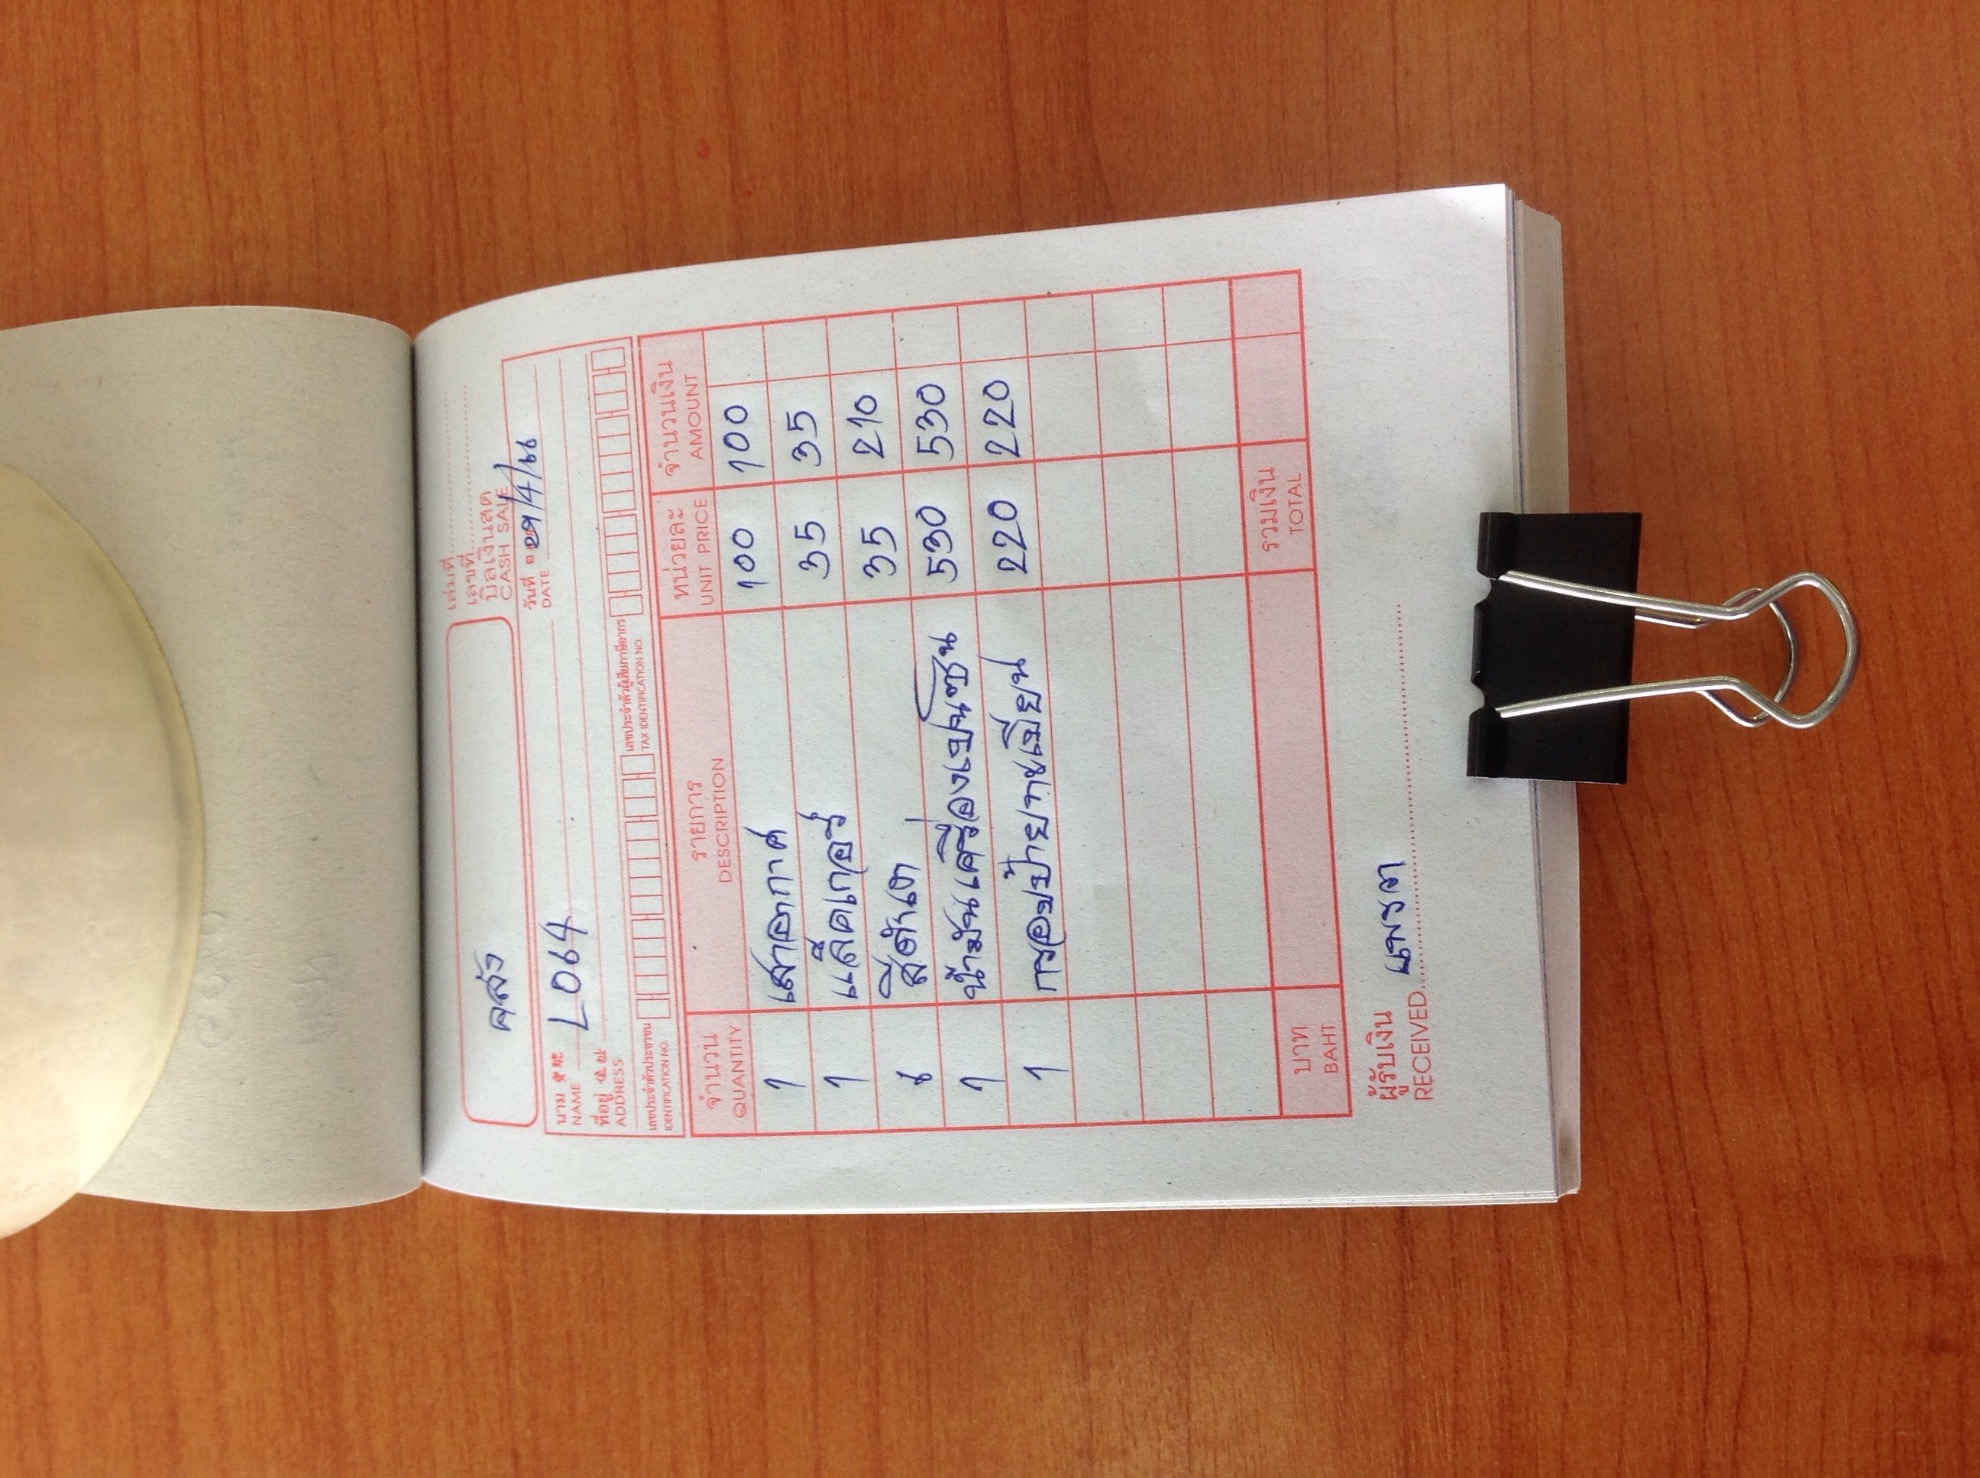 เล่มที่
เลขที่
บิลเงินสด
CASH SALE
คลัง
วันที่ 29/4/66
DATE
นาม L064
NAME
ที่อยู่
ADDRESS
เลขประจำตัวประชาชน เลขประจำตัวผู้เสียภาษีอากร
IDENTIFICATION NO. TAX IDENTIFICATION NO.
จำนวน รายการ หน่วยละ จำนวนเงิน
QUANTITY DESCRIPTION UNIT PRICE AMOUNT
1 เสาอากาศ 100 100
1 แล็คเกอร์ 35 35
6 สีดำเงา 35 210
1 น้ำมันเครื่องเบนซิน 530 530
1 กรอบป้ายทะเบียน 220 220
บาท รวมเงิน
BAHT TOTAL
ผู้รับเงิน
RECEIVED